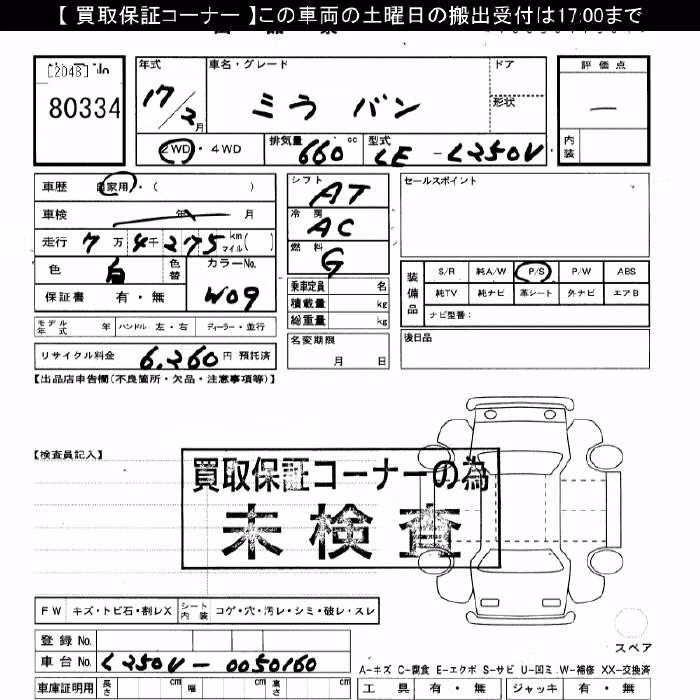 【 買取保証コーナー 】この車両の土曜日の搬出受付は17:00まで
[2048] No
80334
年式
17/2月
車名・グレード
ミラ バン
ドア
形状
評価点
―
内装
2WD・4WD
排気量 660 cc
型式 LE - L250V
車歴 自家用・( )
車検 年 月
走行 7万4千275 km マイル( )
色 白 色替
カラーNo. W09
保証書 有・無
シフト AT
冷房 AC
燃料 G
乗車定員 名
積載量 kg
総重量 kg
セールスポイント
装備品
S/R 純A/W P/S P/W ABS
純TV 純ナビ 革シート 外ナビ エアB
ナビ型番:
モデル年式 年 ハンドル 左・右 ディーラー・並行
リサイクル料金 6,260 円 預託済
名変期限 月 日
後日品
【出品店申告欄(不良箇所・欠品・注意事項等)】
【検査員記入】
買取保証コーナーの為
未検査
FW キズ・トビ石・割レX シート内装 コゲ・穴・汚レ・シミ・破レ・スレ
スペア
登録No.
車台No. L250V-0050160
車庫証明用 長さ cm 幅 cm 高さ cm
A-キズ C-腐食 E-エクボ S-サビ U-凹ミ W-補修 XX-交換済
工具 有・無 ジャッキ 有・無